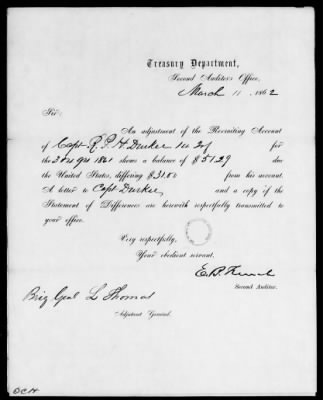 Treasury Department,
Second Auditor's Office,
March 11, 1862
Sir:
An adjustment of the Recruiting Account
of Capt. R. P. H. Durkee 1st for
the 3d qr 1861 shows a balance of $51.29 due
the United States, differing $31.00 from his account.
A letter to Capt Durkee, and a copy of the
Statement of Differences are herewith respectfully transmitted to
your office.
Very respectfully,
Your obedient servant,
E. B. French
Second Auditor.
Brig Genl L Thomas
Adjutant General.